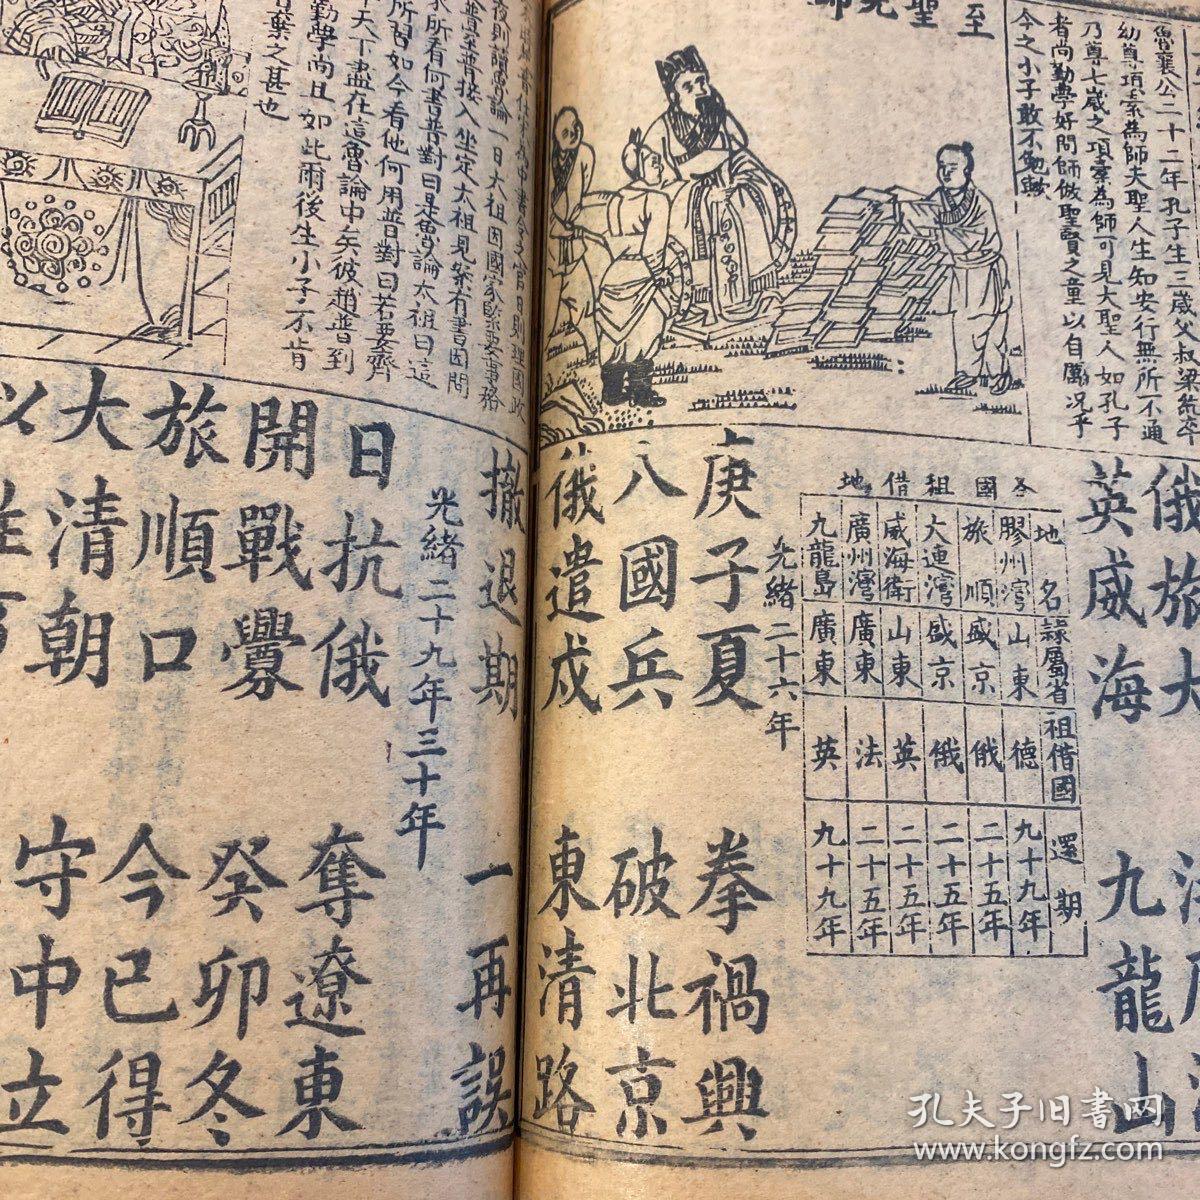 至聖先師
魯襄公二十二年孔子生三歲父叔梁紇卒
幼尊項橐為師夫聖人生知安行無所不通
乃尊七歲之項橐為師可見大聖人如孔子
者尚勤學好問師做聖賢之童以自厲况乎
今之小子敢不勉歟
俄旅大
英威海
九龍山
各國租借地
地名 隸屬省 租借國 還期
膠州灣 山東 德 九十九年
旅順 盛京 俄 二十五年
大連灣 盛京 俄 二十五年
威海衛 山東 英 二十五年
廣州灣 廣東 法 二十五年
九龍島 廣東 英 九十九年
光緒二十六年
庚子夏 拳禍興
八國兵 破北京
俄遣戍 東清路
夜則讀魯論一日太祖因國家緊要事務
所習如今看他何用普對曰若要齊
天下盡在這魯論中矣彼趙普到
勤學尚且如此爾後生小子不肯
棄之甚也
撤退期 一再誤
光緒二十九年三十年
日抗俄 奪遼東
開戰釁 癸卯冬
旅順口 今已得
大清朝 守中立